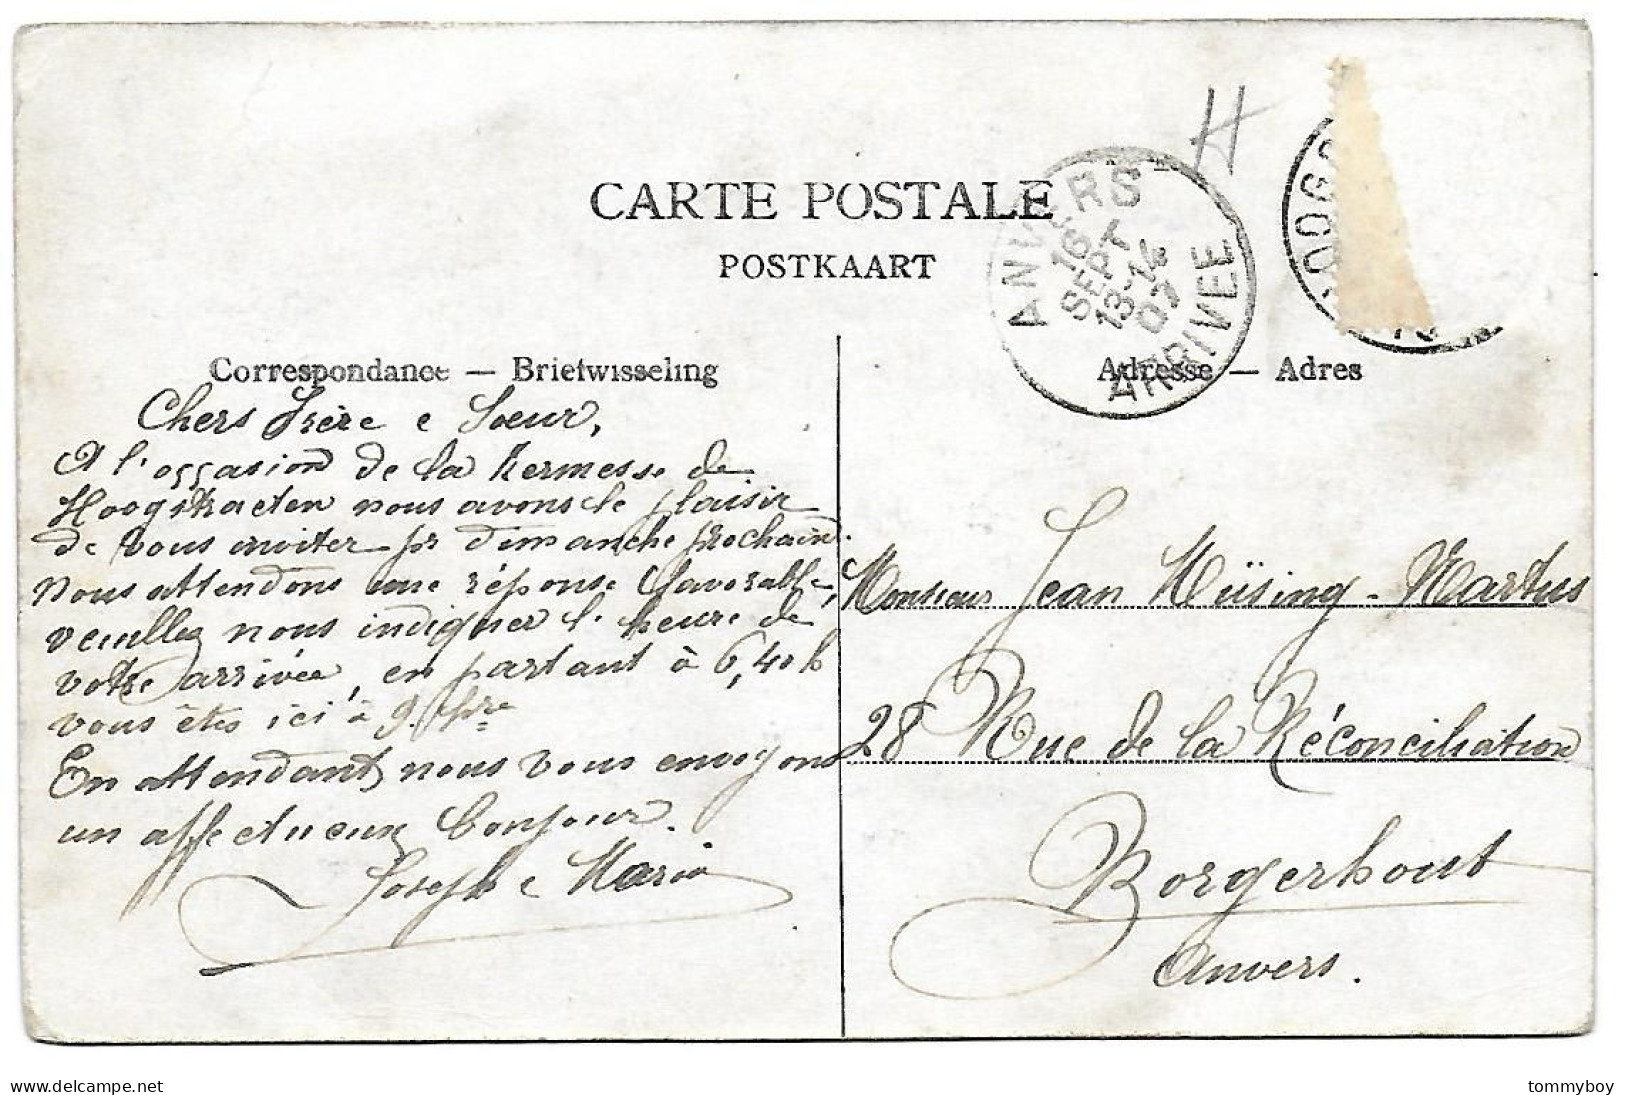 CARTE POSTALE
POSTKAART
ANVERS
16
SEPT
13-14
07
ARRIVEE
HOOGS
Correspondance — Briefwisseling
Adresse — Adres
Chers Frère e Soeur,
A l'occasion de la Kermesse de
Hoogstraeten nous avons le plaisir
de vous inviter pr Dimanche prochain.
Nous attendons une réponse favorable,
veuillez nous indiquer l'heure de
votre arrivée, en partant à 6,40 h
vous êtes ici à 9. hre
En attendant, nous vous envoyons
un affectueux bonjour.
Joseph e Maria
Monsieur Jean Müsing - Martus
28 Rue de la Réconciliation
Borgerhout
Anvers.
tommyboy
delcampe.net